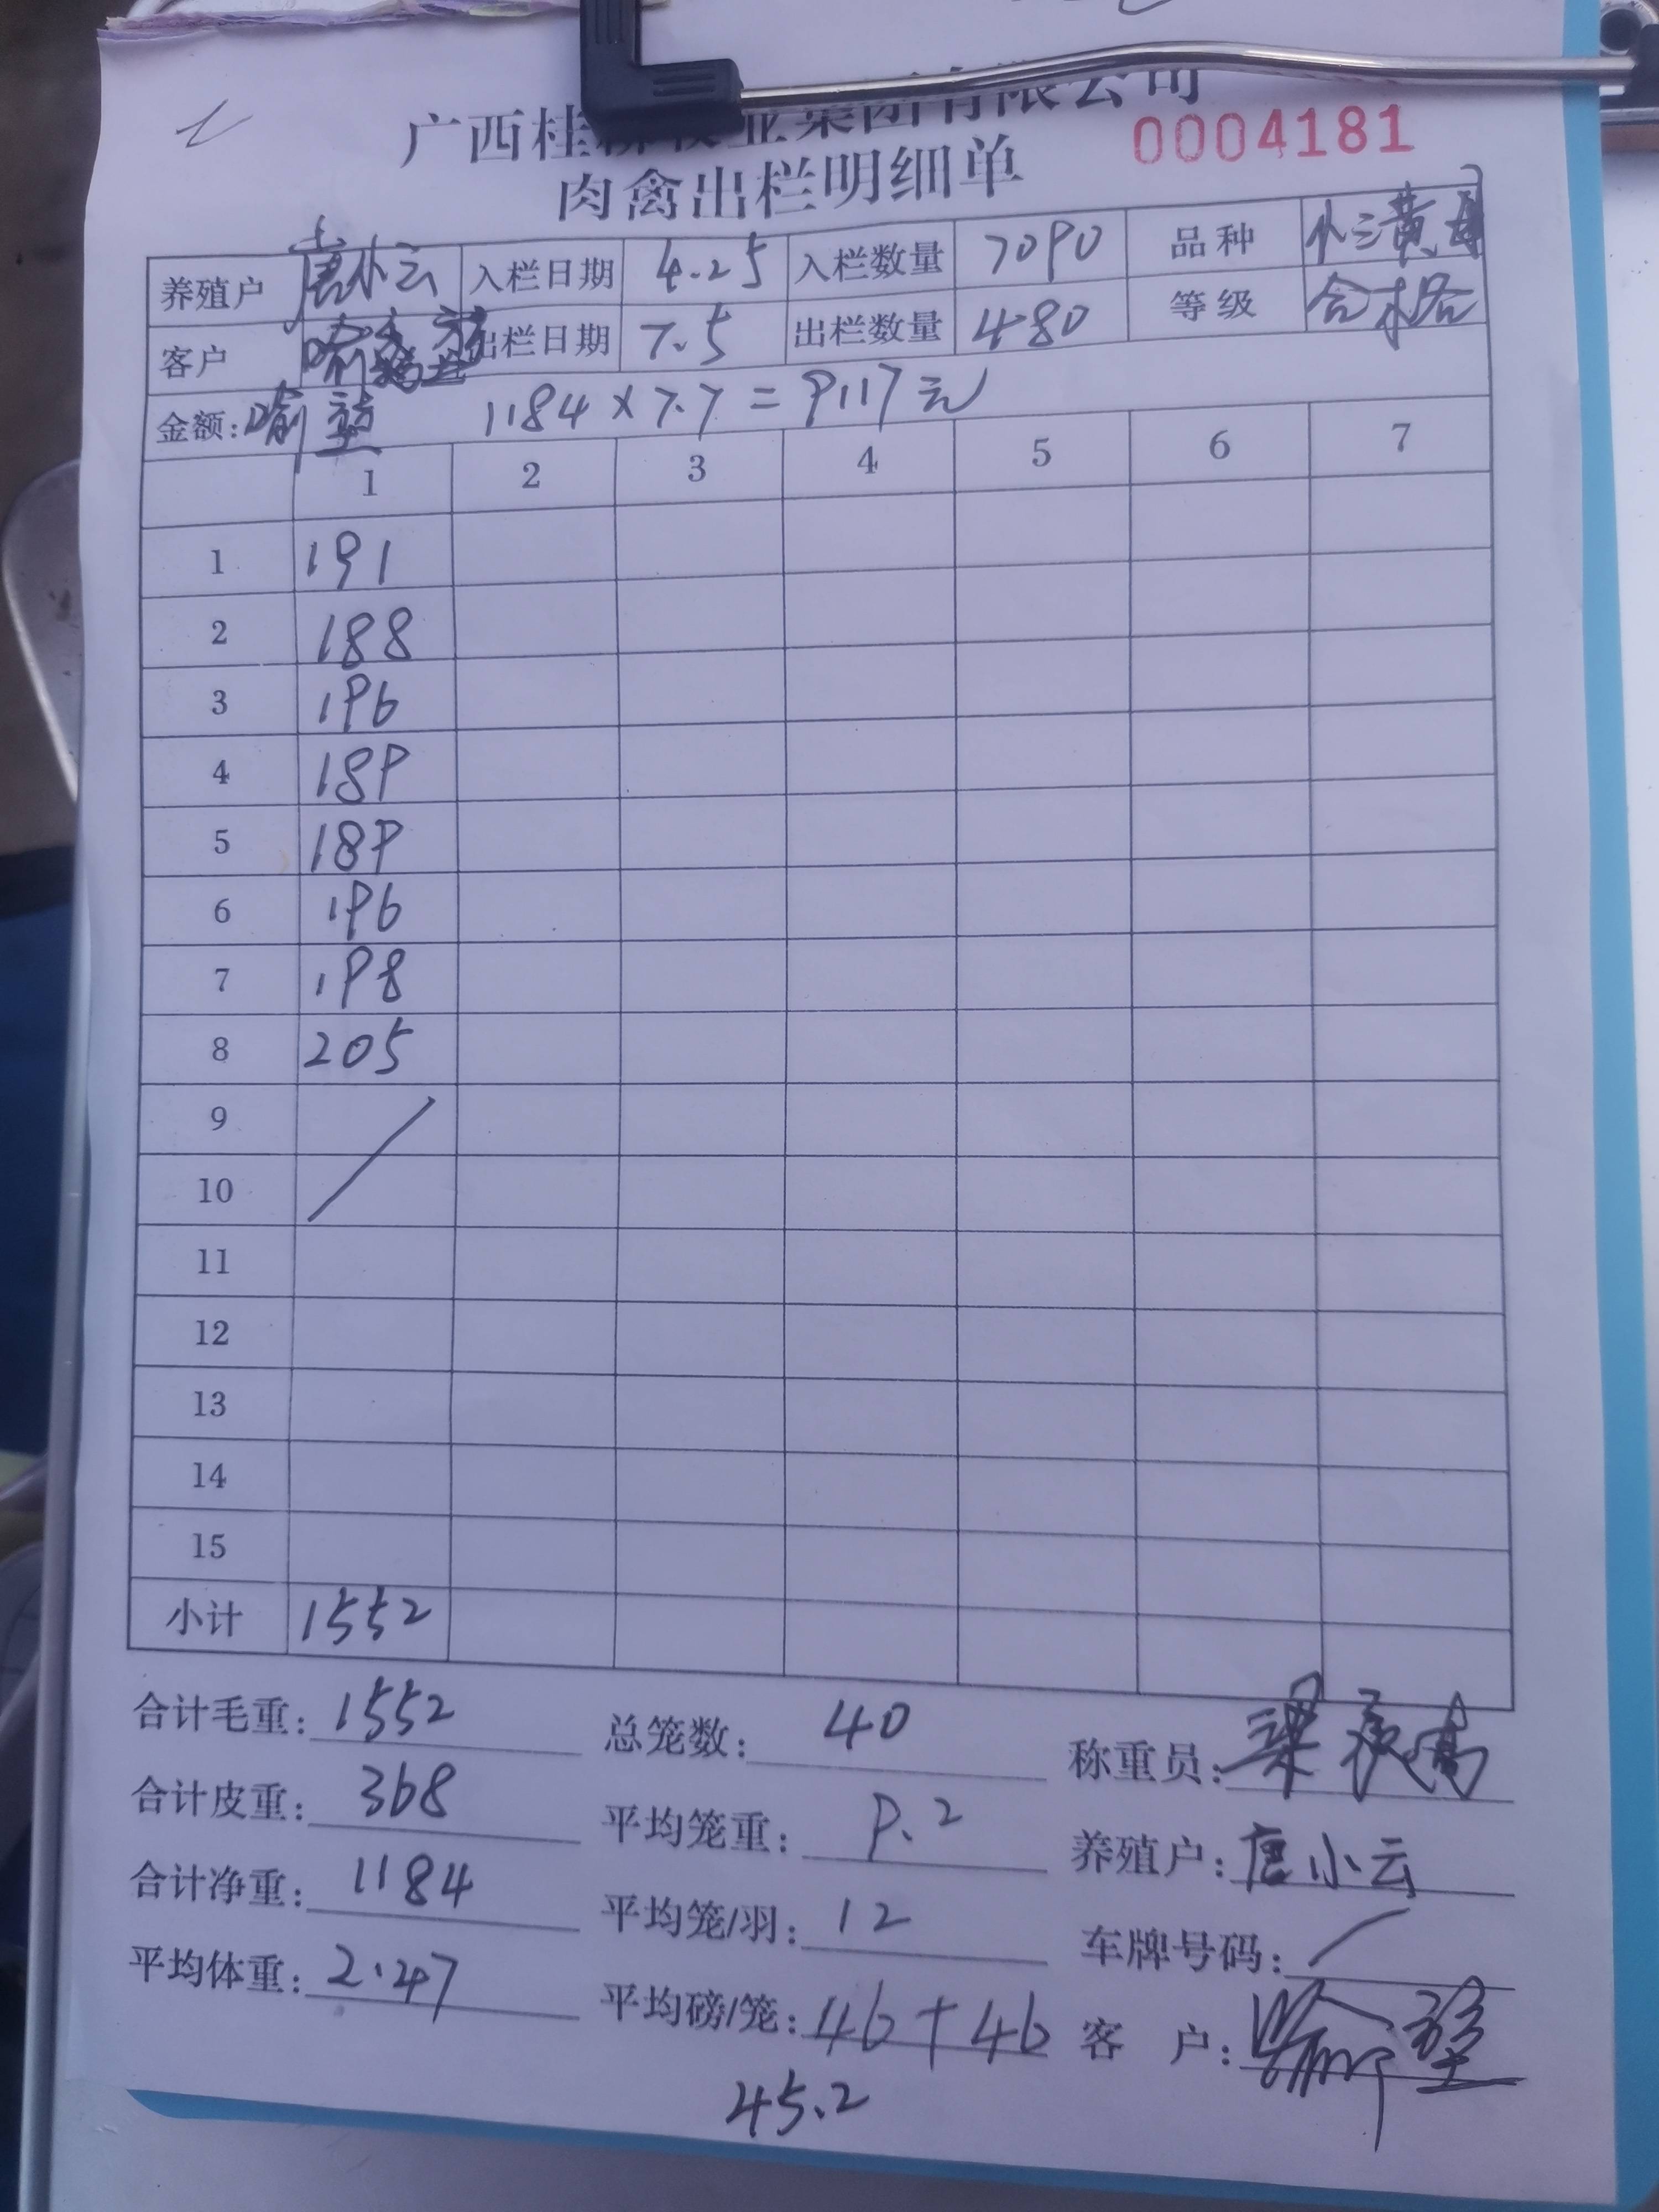 广西桂柳牧业集团有限公司
肉禽出栏明细单 0004181
养殖户 唐小云 入栏日期 4.25 入栏数量 7090 品种 小三黄母
客户 出栏日期 7.5 出栏数量 480 等级 合格
金额: 1184×7.7=9117元
1 2 3 4 5 6 7
1 191
2 188
3 196
4 189
5 189
6 196
7 198
8 205
9
10
11
12
13
14
15
小计 1552
合计毛重: 1552 总笼数: 40 称重员: 梁
合计皮重: 368 平均笼重: 9.2 养殖户: 唐小云
合计净重: 1184 平均笼/羽: 12 车牌号码: /
平均体重: 2.47 平均磅/笼: 46+46 客 户:
45.2